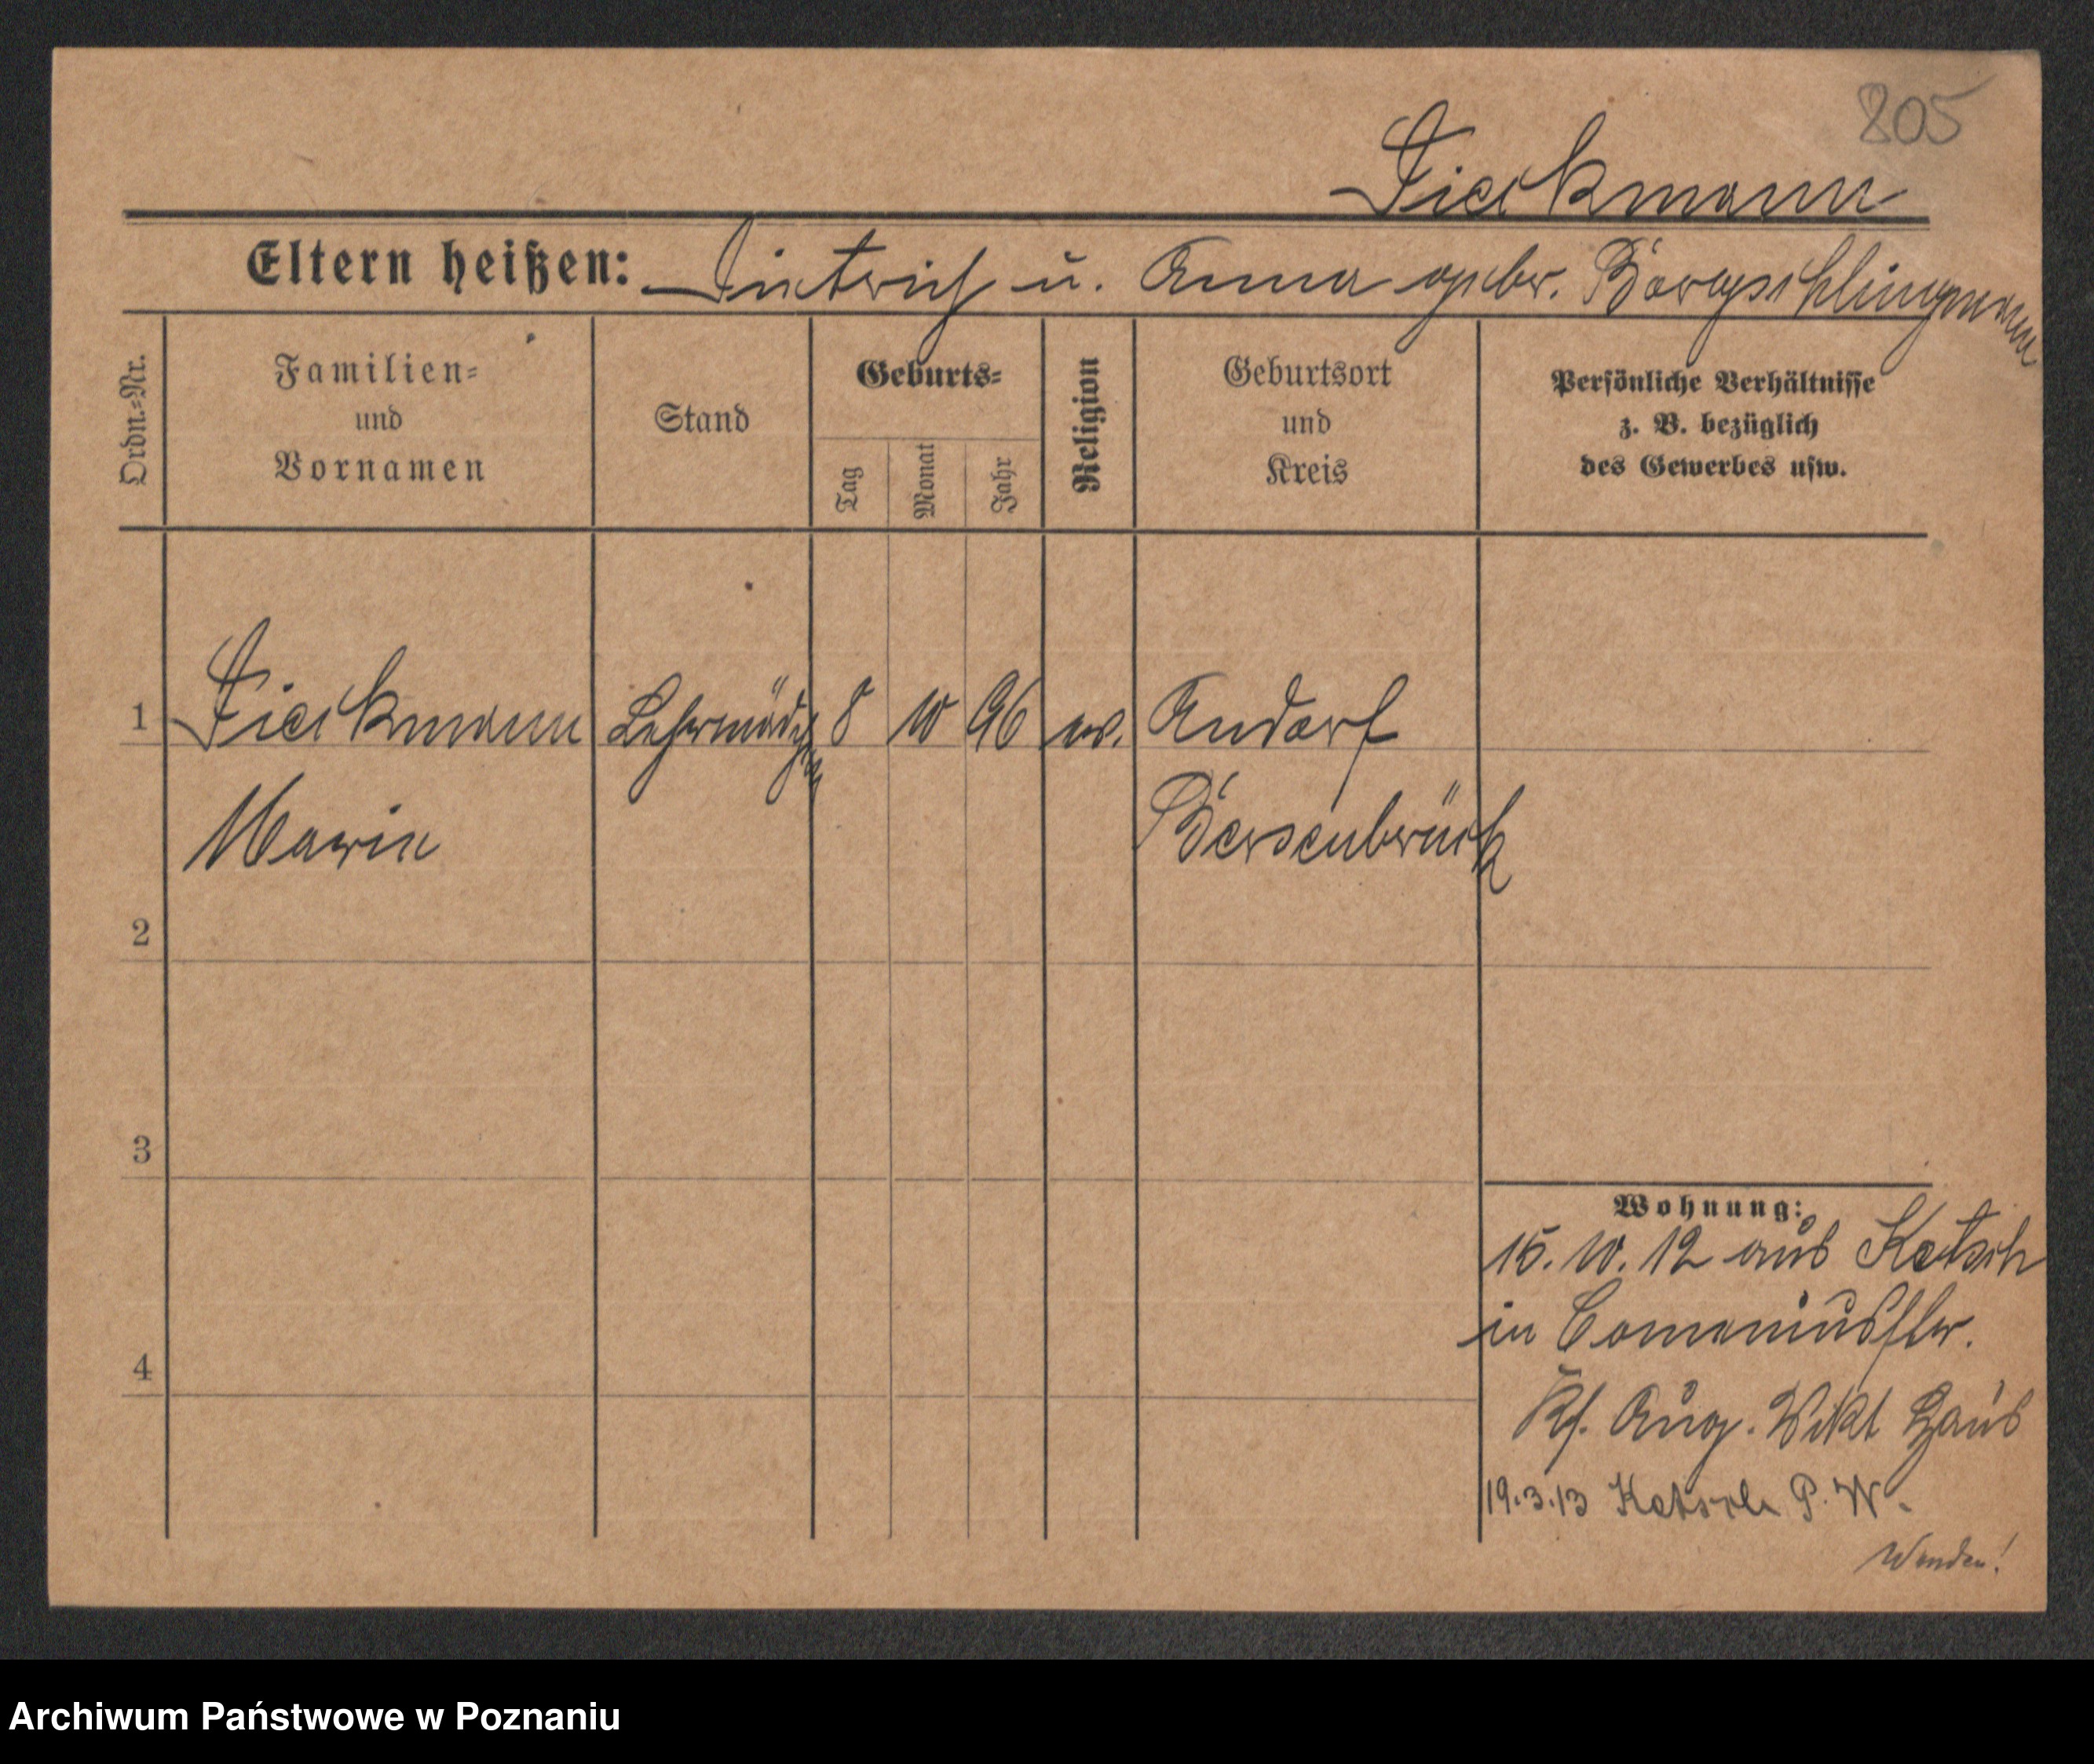 805
Dieckmann
Eltern heißen: Dietrich u. Anna gebr. Borgschlingmann
Ordn.-Nr.
Familien-
und
Vornamen
Stand
Geburts-
Tag
Monat
Jahr
Religion
Geburtsort
und
Kreis
Persönliche Verhältnisse
z. B. bezüglich
des Gewerbes usw.
1 Dieckmann Lehrmädchen 8 10 96 ev. Andorf
Marie Bersenbrück
2
3
4
Wohnung:
15. 10. 12 aus Kotsch
in Comeniusstr.
Ks. Aug. Vikt Haus
19.3.13 Kotsch P. W.
Wenden!
Archiwum Państwowe w Poznaniu